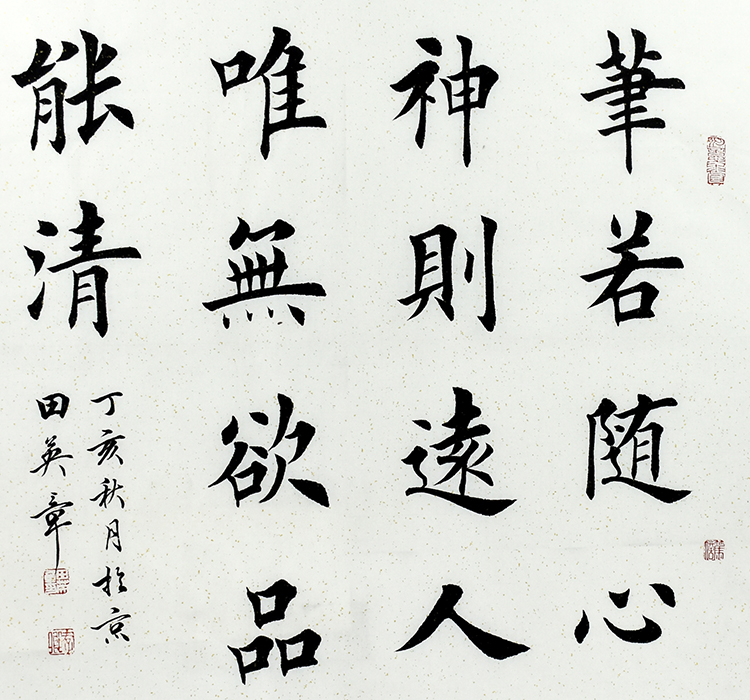 筆若随心
神則遠人
唯無欲品
能清
丁亥秋月於京
田英章